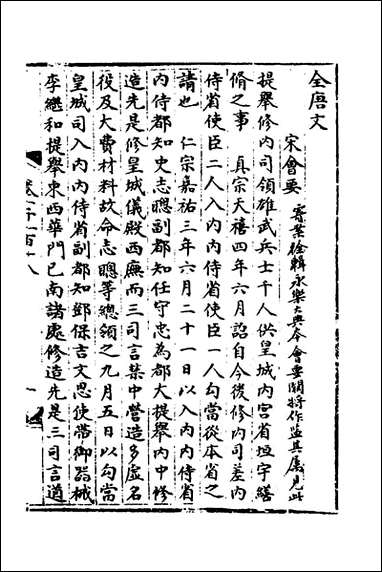 全唐文
宋會要
專案徐輯永樂大典本會要關將作監其屬見此
提舉修內司領雄武兵士千人供皇城內宮省垣宇繕
脩之事　真宗天禧四年六月詔自今後修內司差內
侍省使臣二人入內內侍省使臣一人勾當從本省之
請也　仁宗嘉祐三年六月二十一日以入內內侍省
內侍都知史志聰副都知任守忠為都大提舉內中修
造先是修皇城儀殿西廡而三司言禁中營造多虛名
役及大費材料故命志聰等總領之九月五日以勾當
皇城司入內內侍省副都知鄧保吉文思使帶御器械
李繼和提舉東西華門已南諸處修造先是三司言遒
卷一千一百十八
一